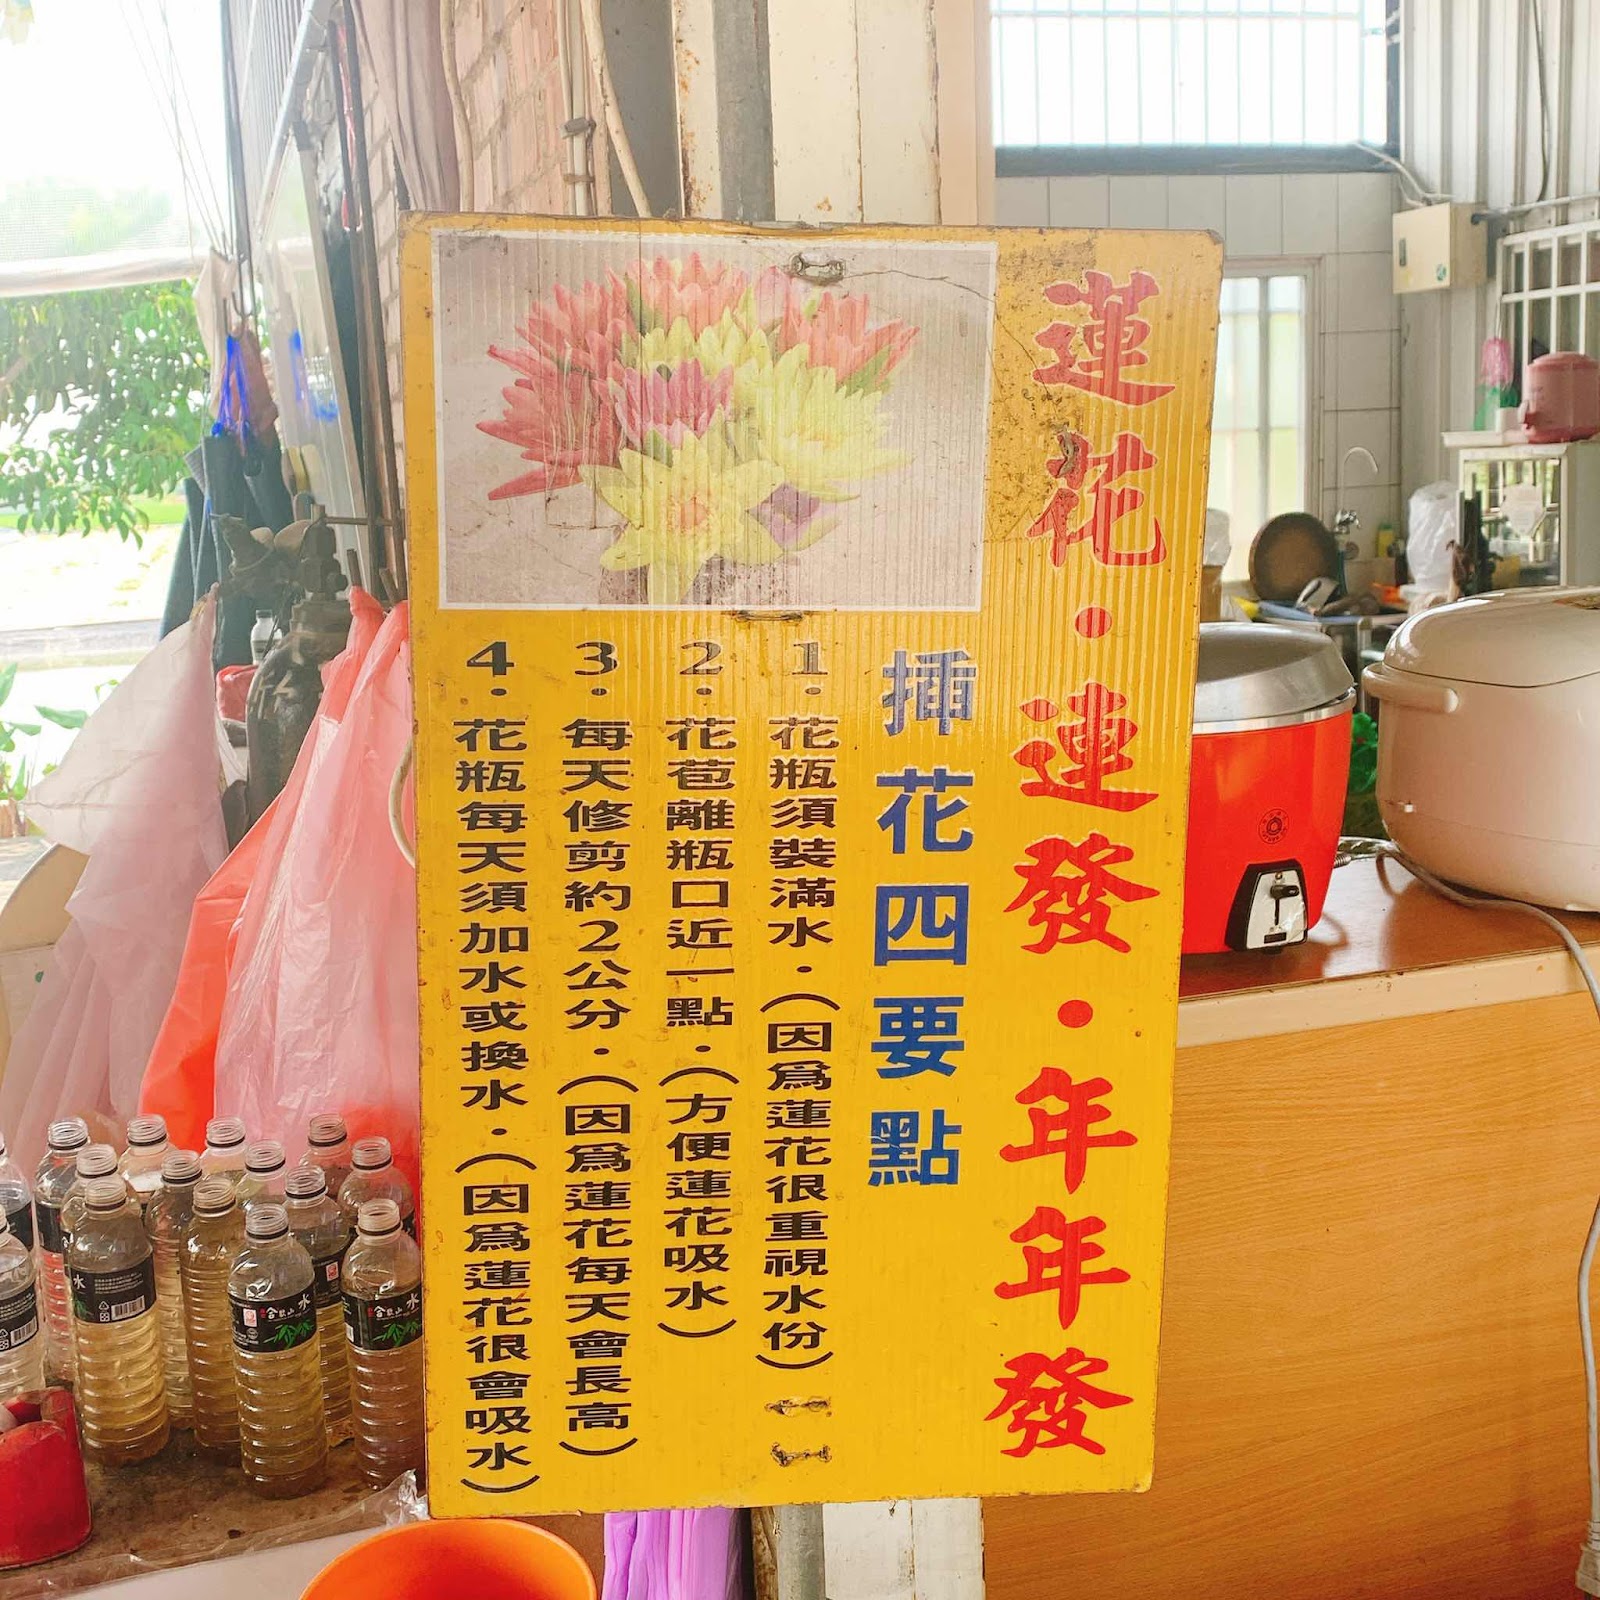 蓮花·連發·年年發
插花四要點
1·花瓶須裝滿水·(因爲蓮花很重視水份)
2·花苞離瓶口近一點·(方便蓮花吸水)
3·每天修剪約2公分·(因爲蓮花每天會長高)
4·花瓶每天須加水或換水·(因爲蓮花很會吸水)